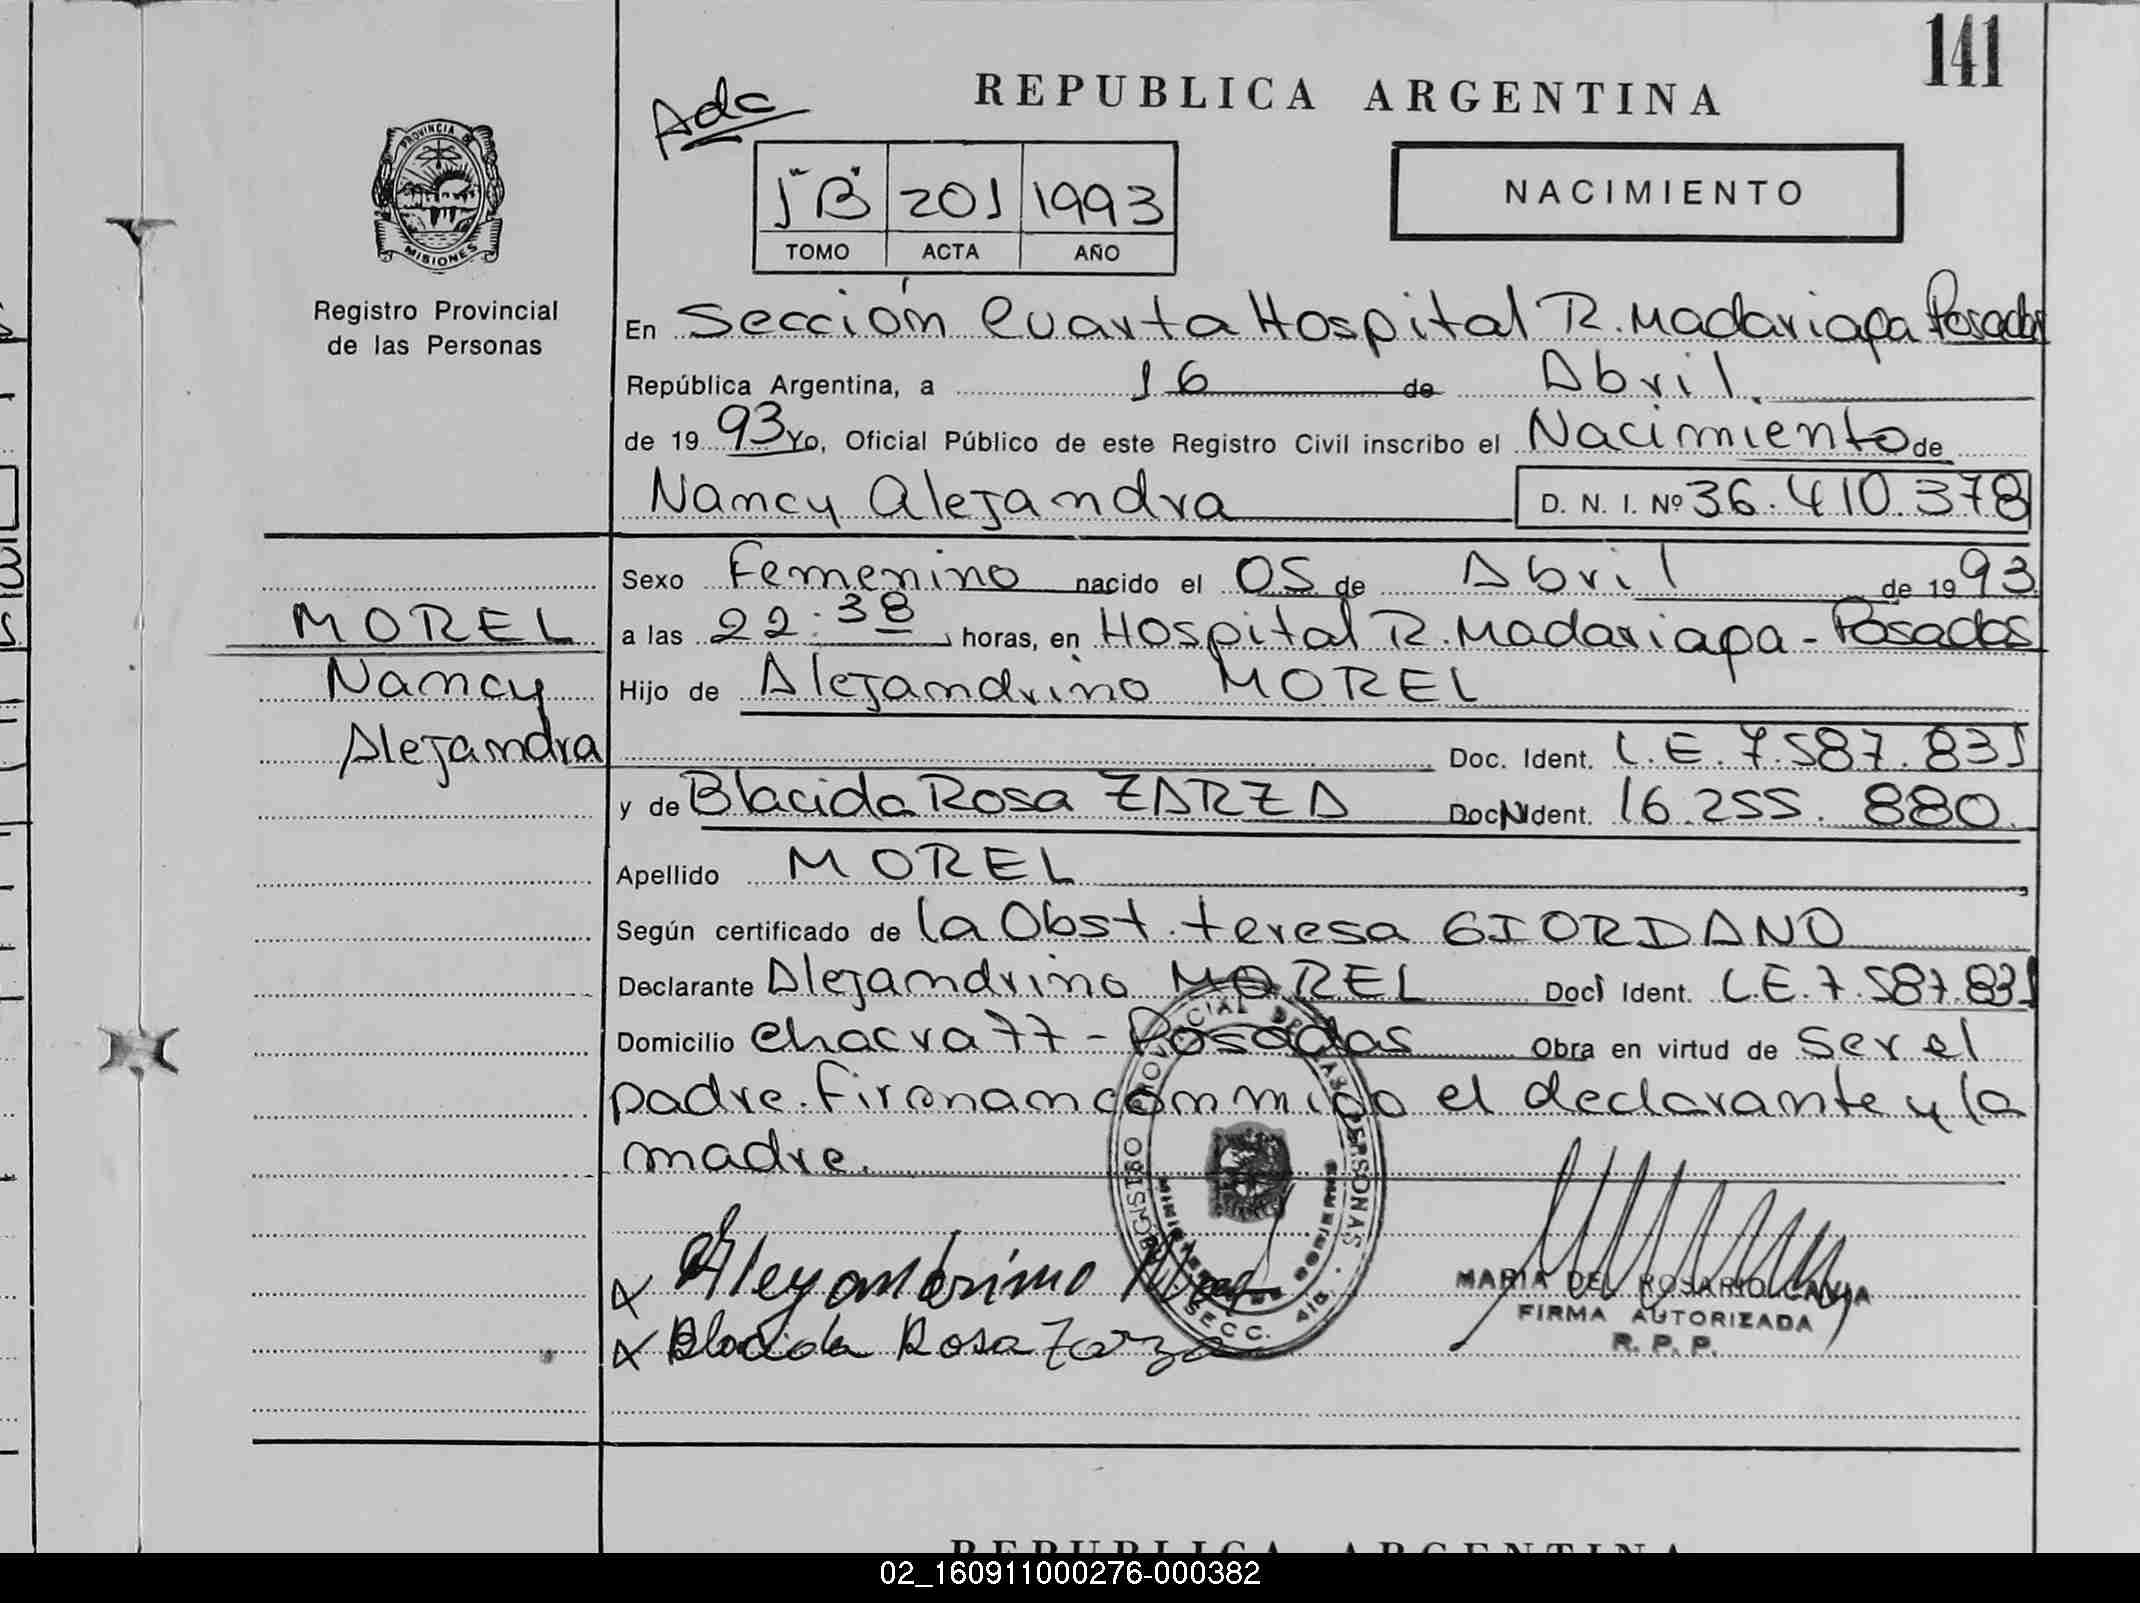 141
REPUBLICA ARGENTINA
Adc
NACIMIENTO
1"B" 201 1993
TOMO ACTA AÑO
PROVINCIA DE
MISIONES
Registro Provincial
de las Personas
En Sección Cuarta Hospital R. Madariaga Posadas
República Argentina, a 16 de Abril
de 19 93 Yo, Oficial Público de este Registro Civil inscribo el Nacimiento de
Nancy Alejandra D. N. I. Nº 36.410.378
Sexo Femenino nacido el 05 de Abril de 19 93
MOREL
Nancy
Alejandra
a las 22:38 horas, en Hospital R. Madariaga - Posadas
Hijo de Alejandrino MOREL
Doc. Ident. L.E. 7.587.831
y de Blacida Rosa ZARZA Doc. Ident. 16.255.880
Apellido MOREL
Según certificado de la Obst. teresa GIORDANO
Declarante Alejandrino MOREL Doc. Ident. L.E. 7.587.831
Domicilio chacra 77 - Posadas Obra en virtud de ser el
padre. Firman conmigo el declarante y la
madre.
x Alejandrino
x Blacida Rosa Zarza
MARIA DEL ROSARIO
FIRMA AUTORIZADA
R. P. P.
REPUBLICA ARGENTINA
02_160911000276-000382